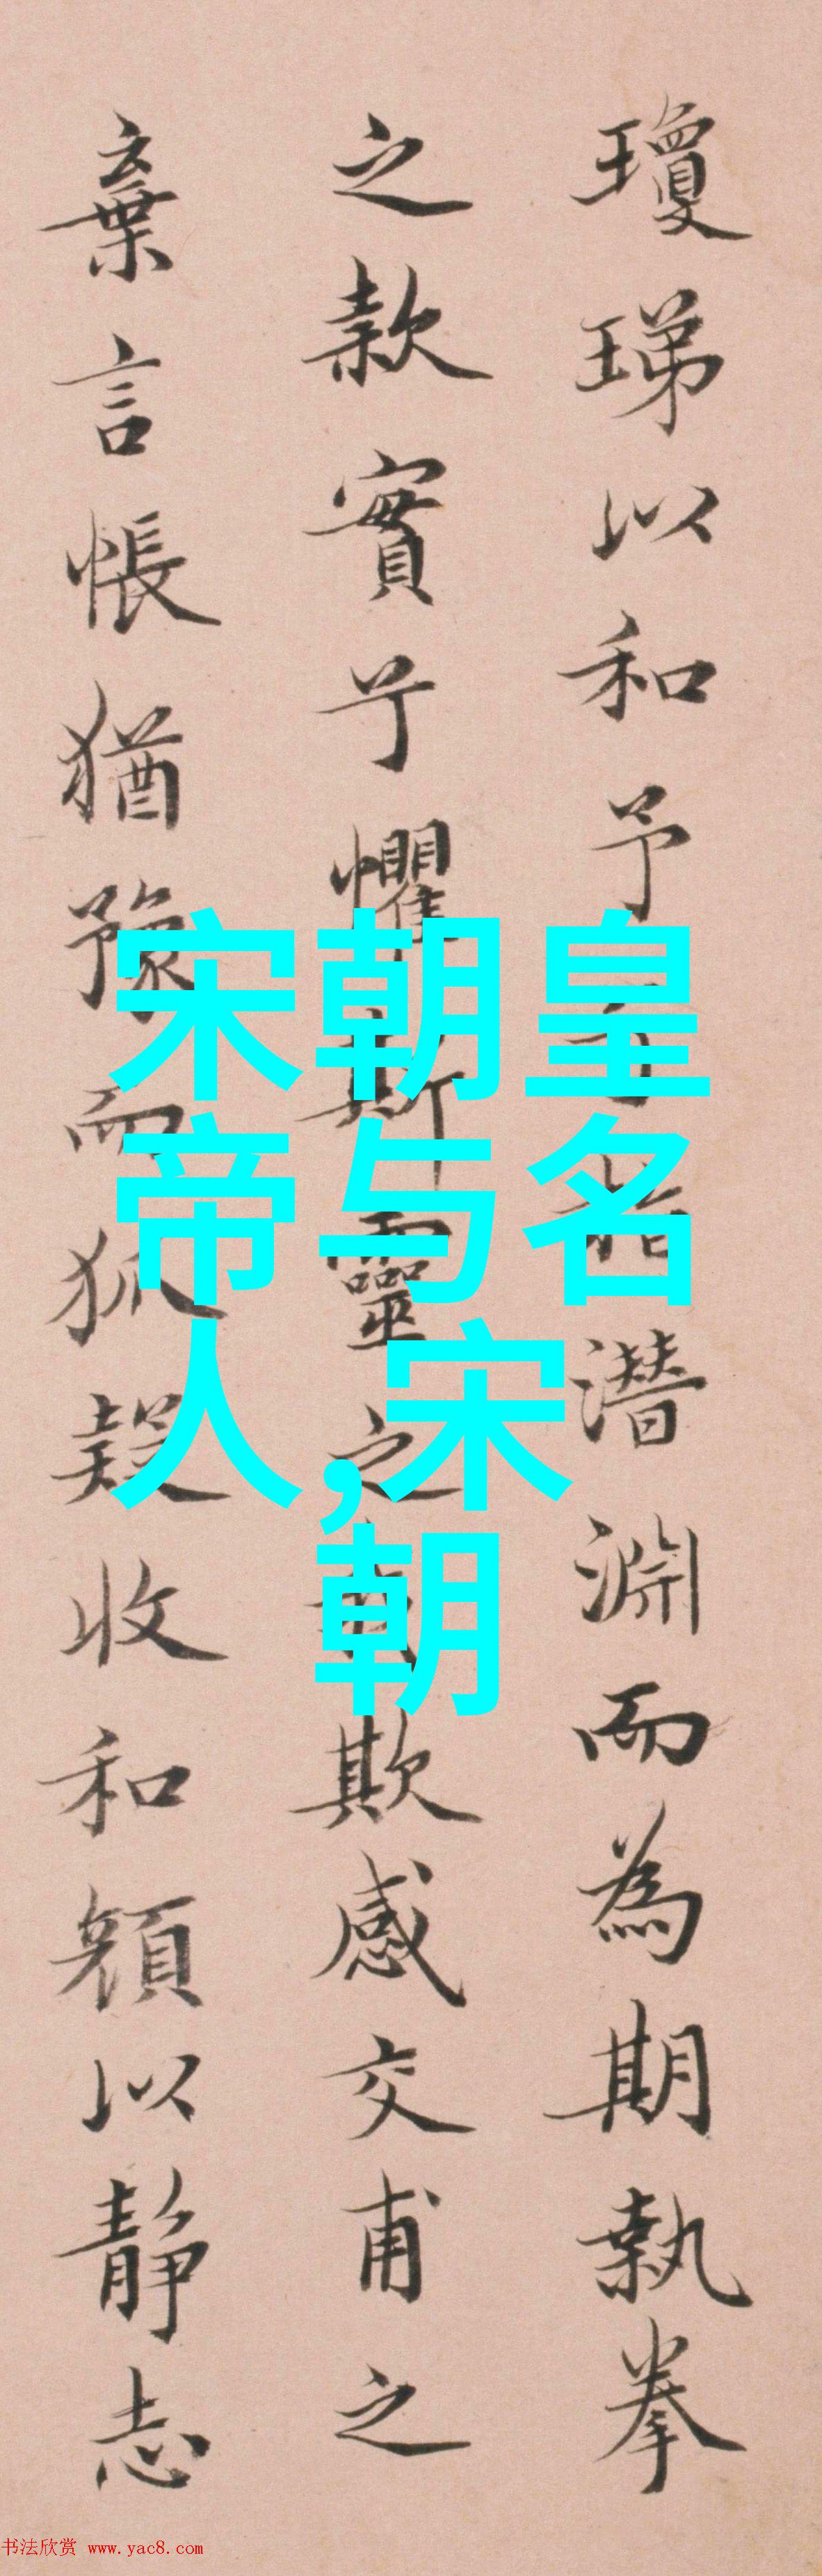 瓊珶以和予兮指潛淵而為期執拳
之款實兮懼斯靈之我欺感交甫之
棄言悵猶豫而狐疑收和顏以靜志
宋朝皇
帝与名
人,宋
朝
书法欣赏 www.yac8.com